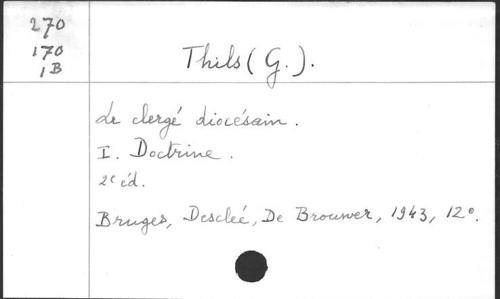 270
170
1B
Thils (G.).
Le clergé diocésain.
I. Doctrine.
2e éd.
Bruges, Desclée, De Brouwer, 1943, 12°.